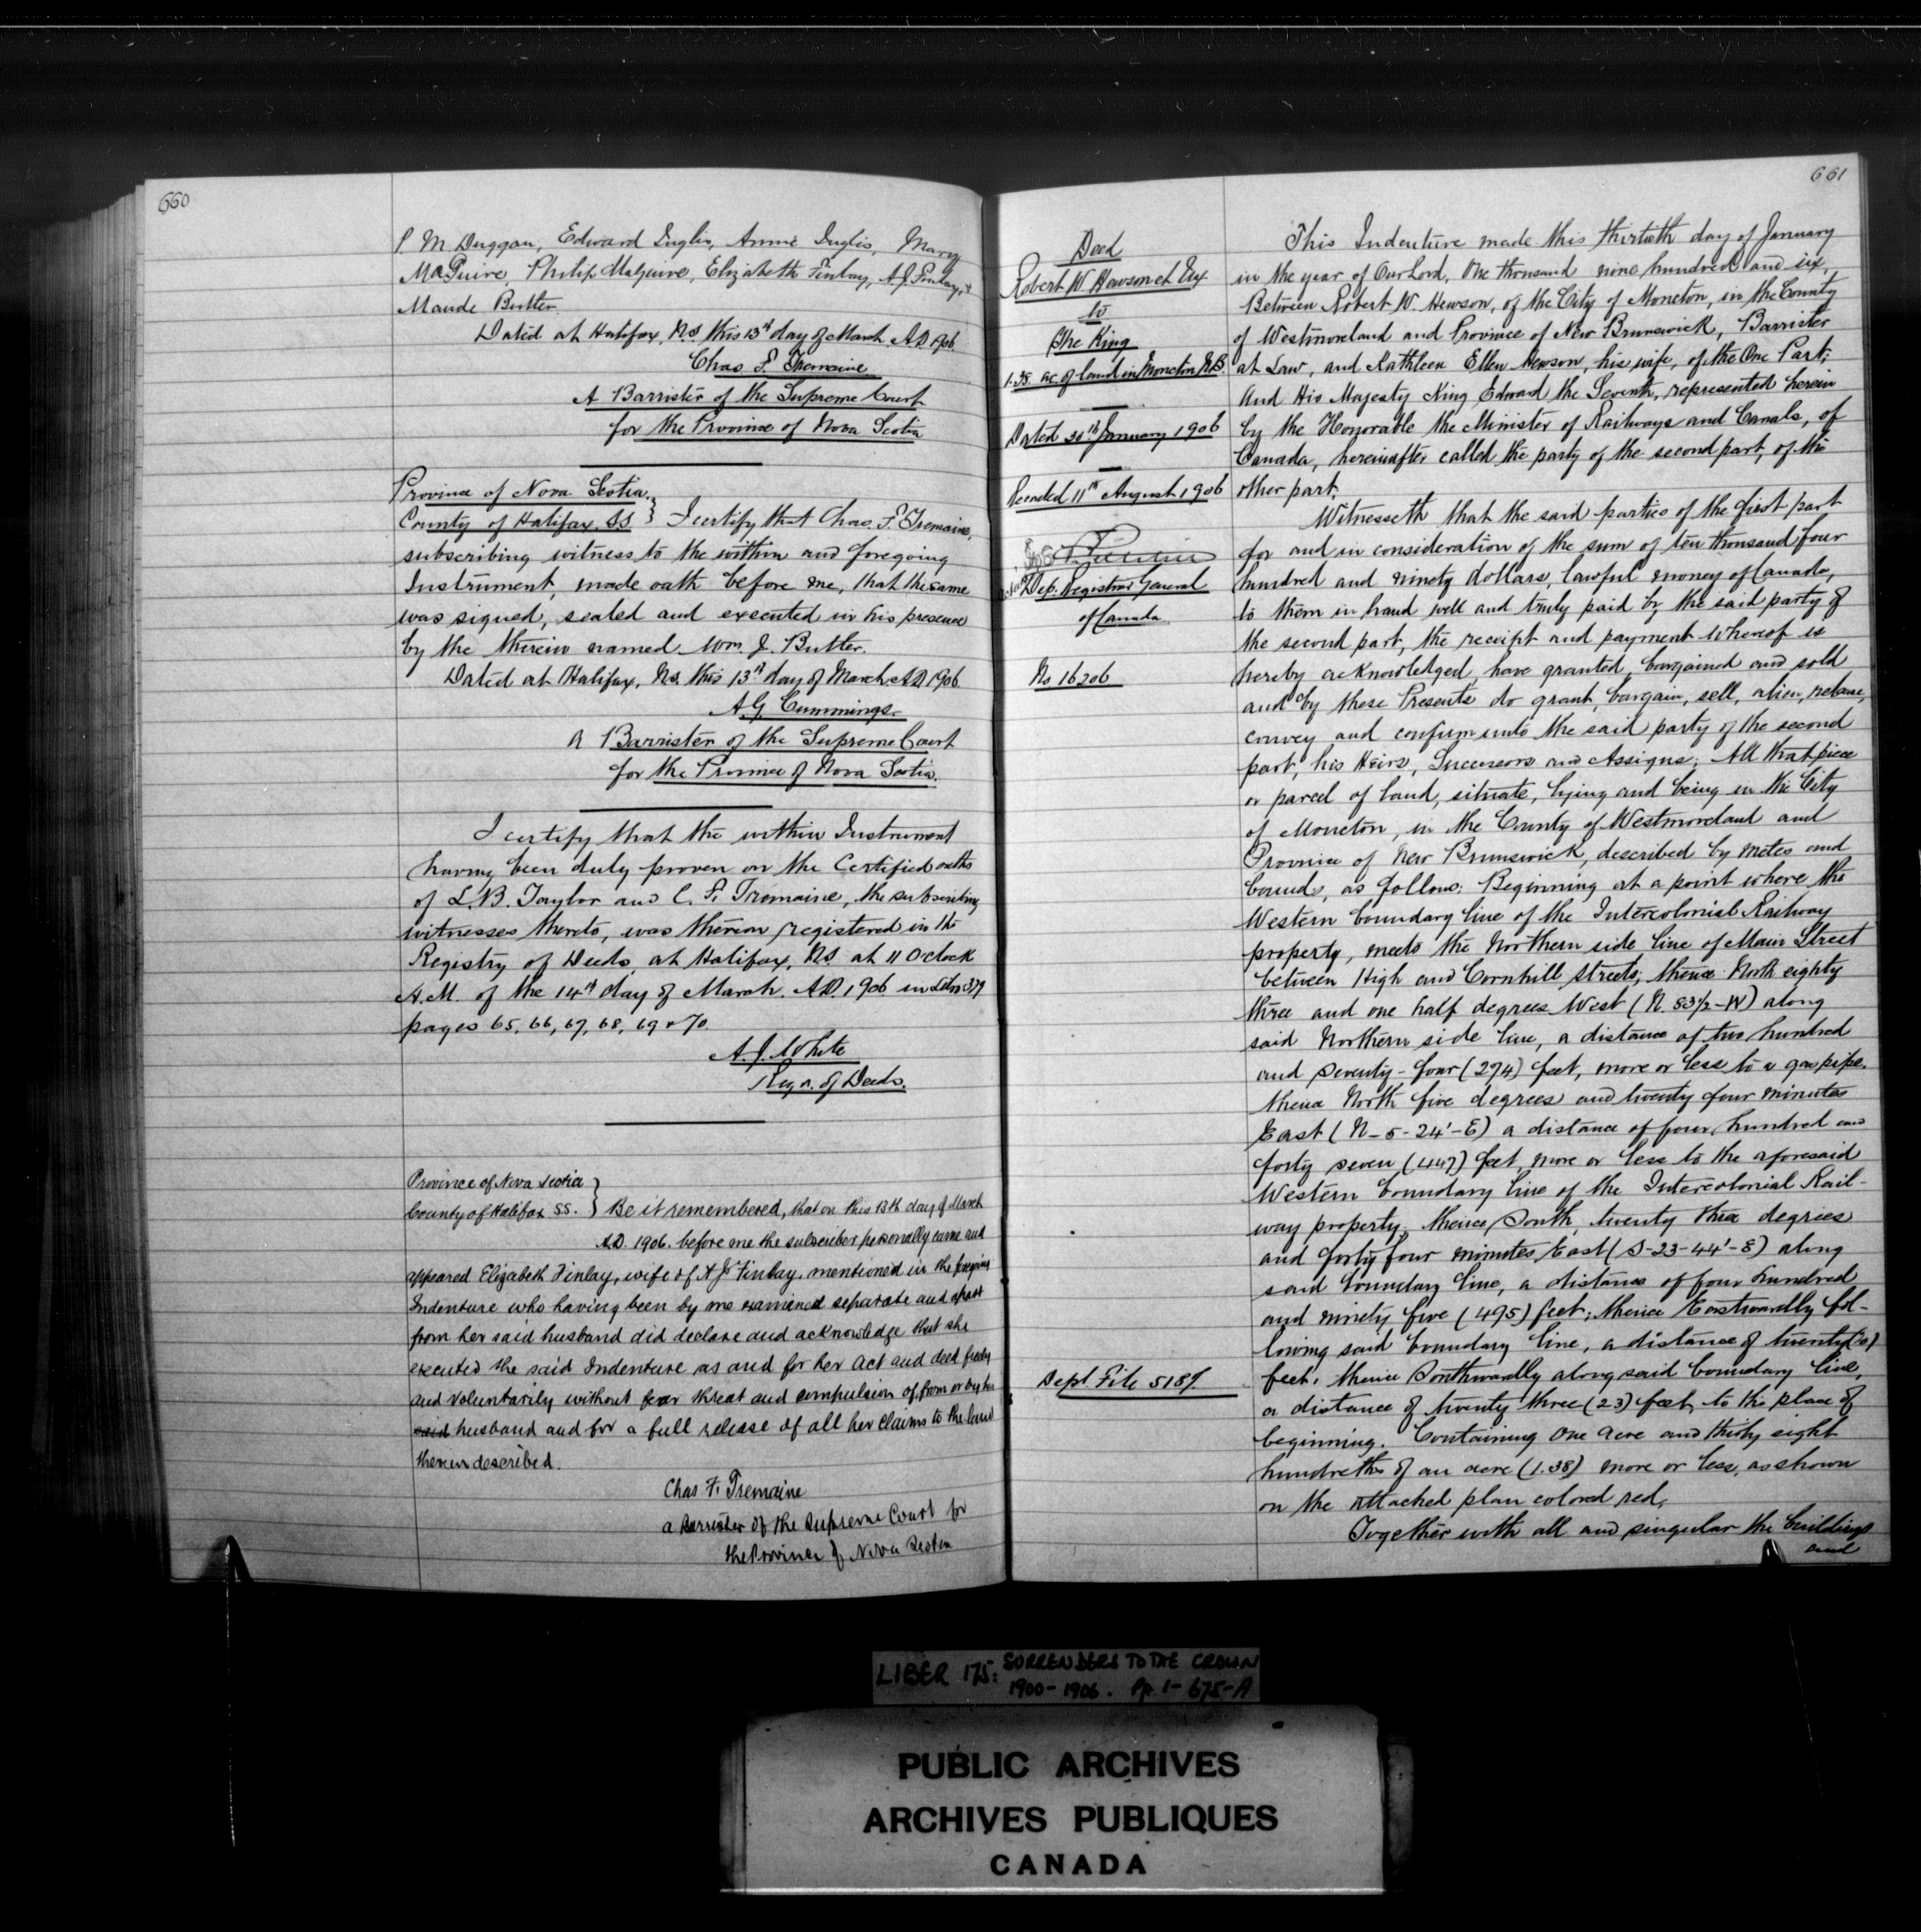 660
P M Duggan, Edward Inglis, Annie Inglis, Mary
McGuire, Philip McGuire, Elizabeth Finlay, A. J. Finlay, &
Maude Butler.
Dated at Halifax, N.S. this 13th day of March A.D. 1906.
Chas F. Tremaine
A Barrister of the Supreme Court
for the Province of Nova Scotia
Province of Nova Scotia
County of Halifax. S.S } I certify that Chas. F. Tremaine,
subscribing witness to the within and foregoing
Instrument, made oath before me, that the same
was signed, sealed and executed in his presence
by the therein named Wm. J. Butler.
Dated at Halifax, N.S. this 13th day of March A.D. 1906
A. G. Cummings
A Barrister of the Supreme Court
for the Province of Nova Scotia.
I certify that the within Instrument
having been duly proven on the Certified oaths
of L. B. Taylor and C. F. Tremaine, the subscribing
witnesses thereto, was thereon registered in the
Registry of Deeds at Halifax, N.S. at 11 O'clock
A.M. of the 14th day of March. A.D. 1906 in Libro 379
pages 65, 66, 67, 68, 69 & 70.
A. J. White
Regr. of Deeds.
Province of Nova Scotia
County of Halifax SS. } Be it remembered, that on this 13th day of March
A.D. 1906. before me the subscriber personally came and
appeared Elizabeth Finlay, wife of A Js Finlay, mentioned in the foregoing
Indenture who having been by me examined separate and apart
from her said husband did declare and acknowledge that she
executed the said Indenture as and for her act and deed freely
and voluntarily without fear threat and compulsion of, from or by her
said husband and for a full release of all her claims to the land
therein described.
Chas F. Tremaine
a Barrister of the Supreme Court for
the Province of Nova Scotia
661
Deed
Robert W. Hewson et Ux
to
The King
1.38. ac. of land in Moncton N.B.
Dated 30th January 1906
Recorded 11th August 1906
Dep. Registrar General
of Canada
No 16206
Dept. File 5187.
This Indenture made this thirtieth day of January
in the year of Our Lord, One thousand nine hundred and six,
Between Robert W. Hewson, of the City of Moncton, in the County
of Westmoreland and Province of New Brunswick, Barrister
at Law, and Kathleen Ellen Hewson, his wife, of the One Part;
And His Majesty King Edward the Seventh, represented herein
by the Honorable the Minister of Railways and Canals, of
Canada, hereinafter called the party of the second part, of the
other part.
Witnesseth that the said parties of the first part
for and in consideration of the sum of ten thousand four
hundred and ninety dollars, lawful money of Canada,
to them in hand well and truly paid by the said party of
the second part, the receipt and payment whereof is
hereby acknowledged, have granted, bargained and sold
and by these Presents do grant, bargain, sell, alien, release,
convey and confirm unto the said party of the second
part, his Heirs, Successors and Assigns; All that piece
or parcel of land, situate, lying and being in the City
of Moncton, in the County of Westmoreland and
Province of New Brunswick, described by metes and
bounds, as follows: Beginning at a point where the
Western boundary line of the Intercolonial Railway
property, meets the Northern side line of Main Street
between High and Cornhill Streets; thence North eighty
three and one half degrees West (N. 83½ - W) along
said Northern side line, a distance of two hundred
and seventy-four (274) feet, more or less to a gas pipe.
thence North five degrees and twenty four minutes
East (N - 5 - 24' - E) a distance of four hundred and
forty seven (447) feet more or less to the aforesaid
Western boundary line of the Intercolonial Rail-
way property, thence South, twenty three degrees
and forty four minutes East (S - 23 - 44' - E) along
said boundary line, a distance of four hundred
and ninety five (495) feet; thence Eastwardly fol-
lowing said boundary line, a distance of twenty (20)
feet; thence Southwardly along said boundary line,
a distance of twenty three (23) feet, to the place of
beginning. Containing One acre and thirty eight
hundreths of an acre (1.38) more or less, as shown
on the attached plan colored red.
Together with all and singular the buildings
and
LIBER 175: SURRENDERS TO THE CROWN
1900-1906. Pp. 1-675-A
PUBLIC ARCHIVES
ARCHIVES PUBLIQUES
CANADA